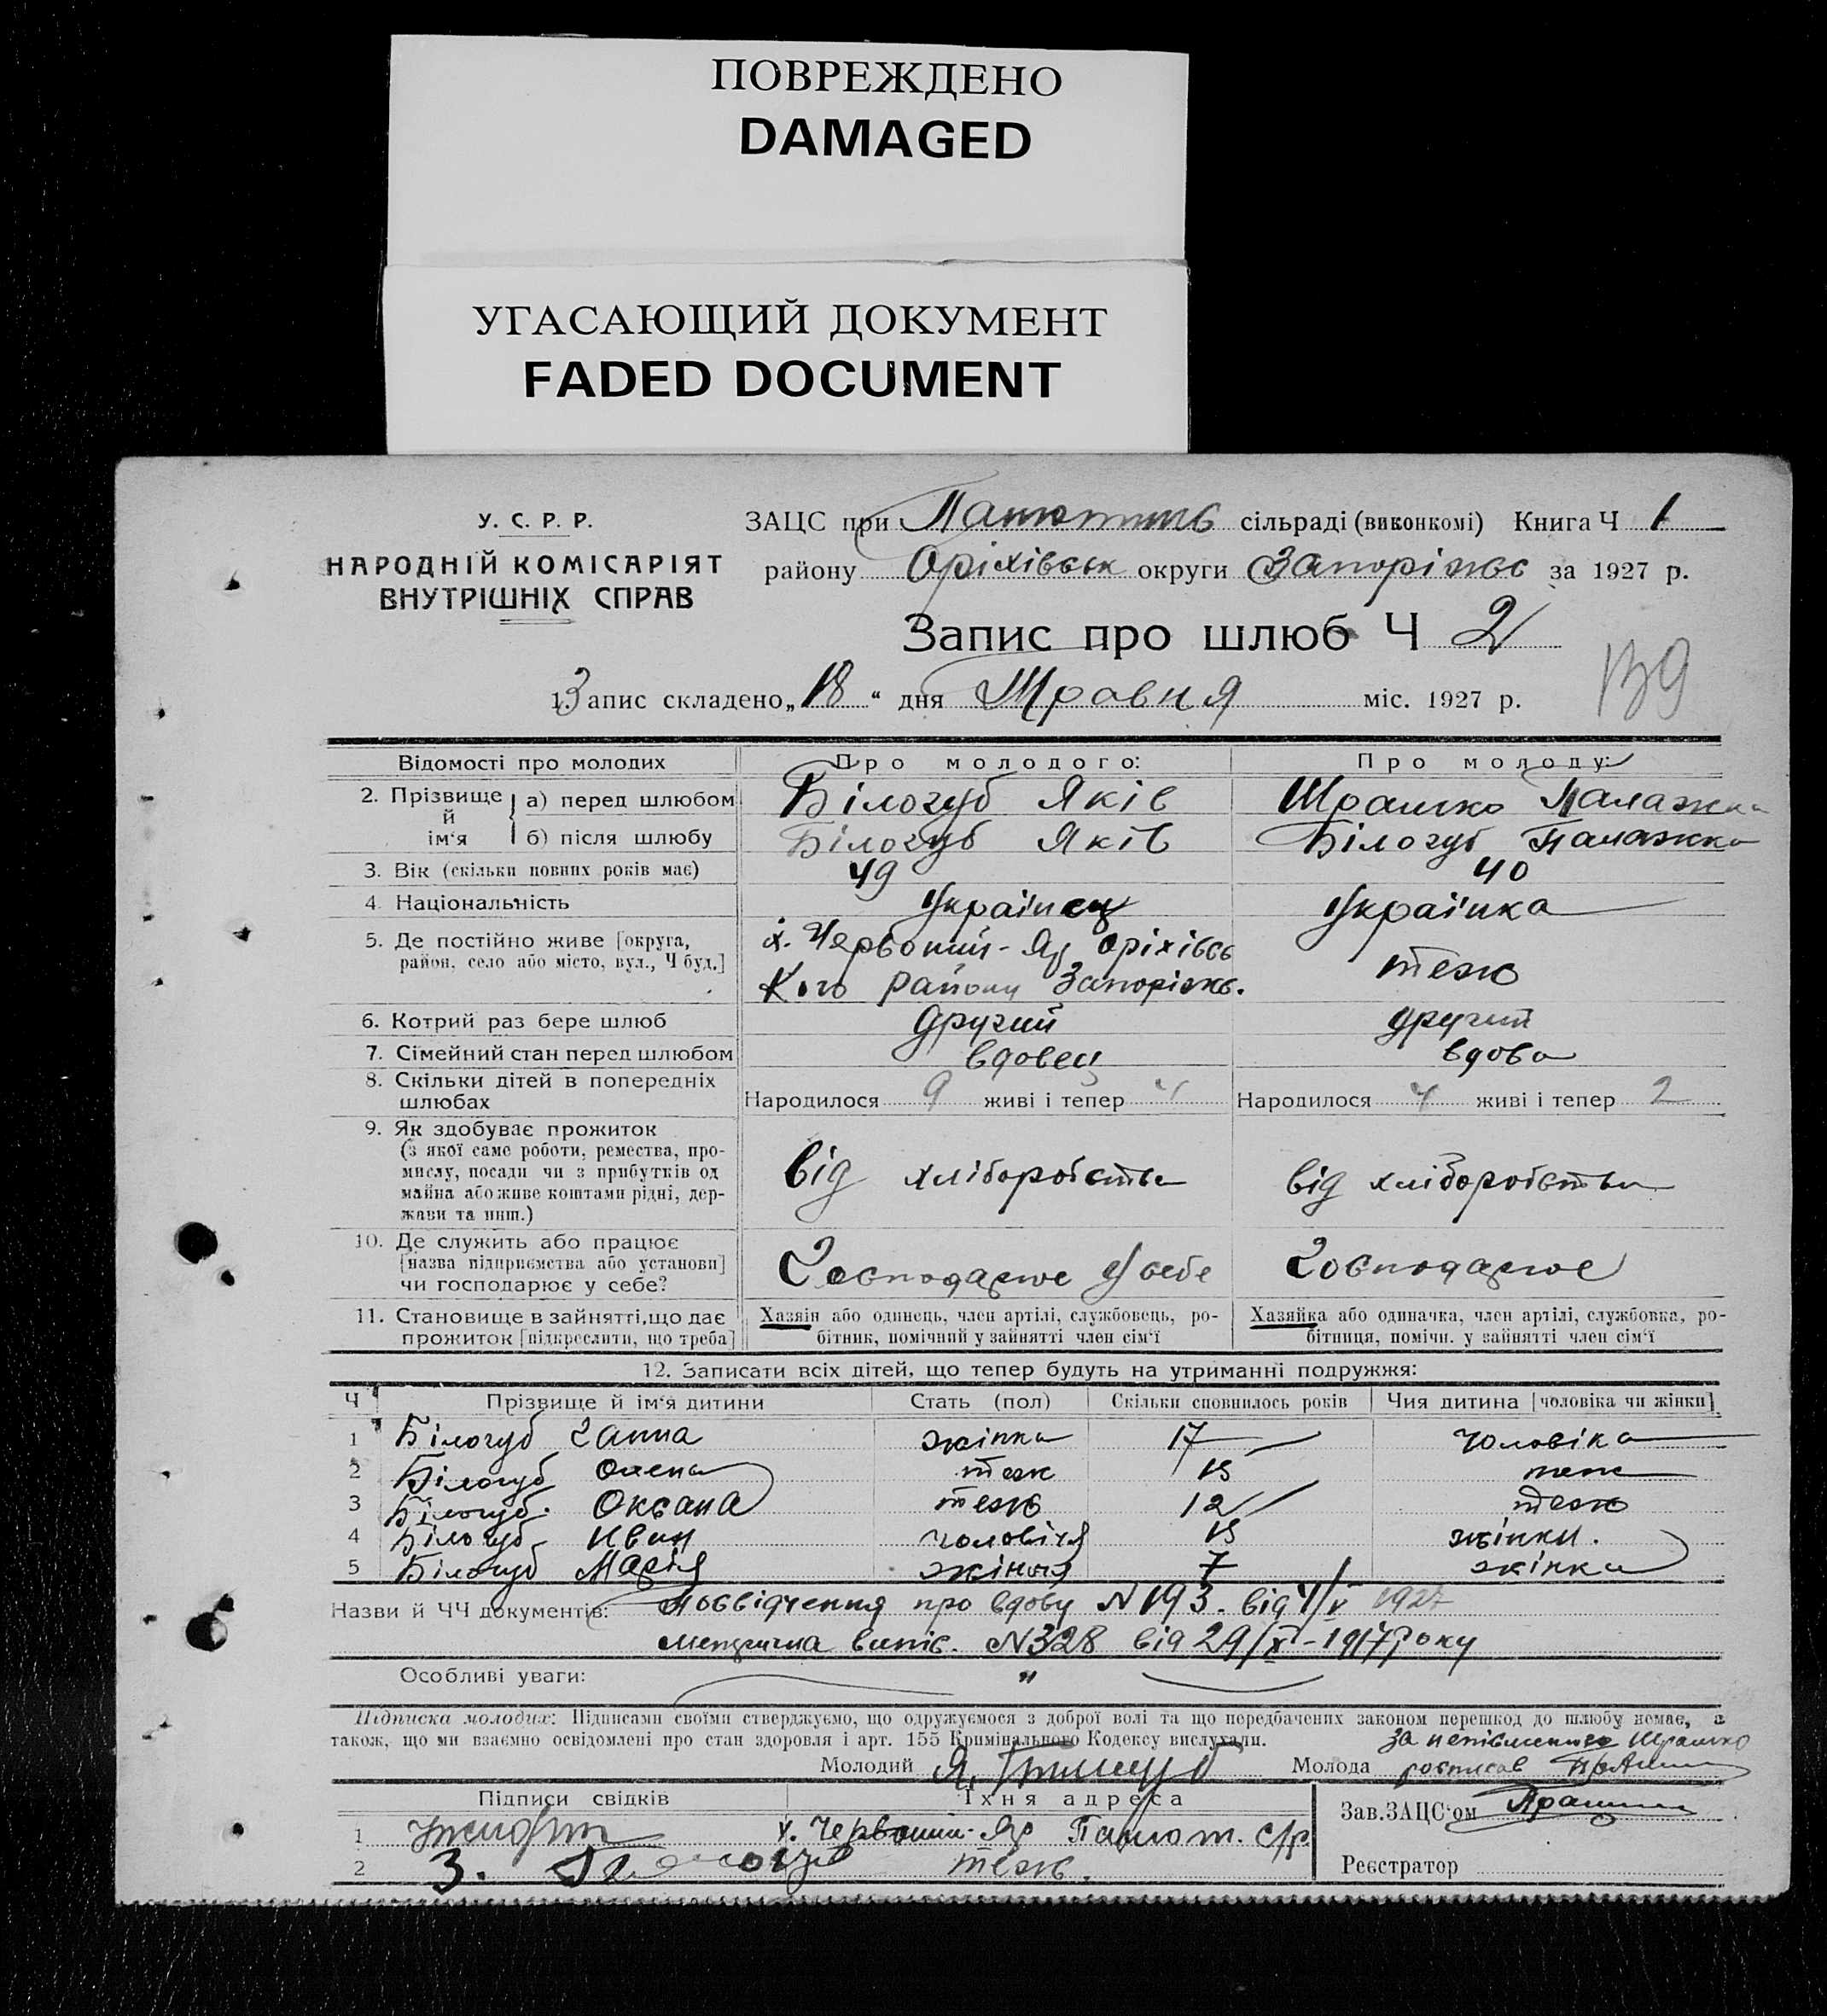 ПОВРЕЖДЕНО
DAMAGED
УГАСАЮЩИЙ ДОКУМЕНТ
FADED DOCUMENT
У. С. Р. Р.
НАРОДНІЙ КОМІСАРІЯТ
ВНУТРІШНІХ СПРАВ
ЗАЦС при сільраді (виконкомі) Книга Ч 1
району Оріхівськ округи Запоріжс за 1927 р.
Запис про шлюб Ч 2
139
1. Запис складено „18“ дня Травня міс. 1927 р.
Відомості про молодих Про молодого: Про молоду:
2. Прізвище й ім‘я а) перед шлюбом Білогуб Яків Шрамко Палажка
б) після шлюбу Білогуб Яків Білогуб Палажка
3. Вік (скільки повних років має) 49 40
4. Національність Українец Українка
5. Де постійно живе [округа, район, село або місто, вул., Ч буд.] х. Червоний-Яр Оріхівсь
Кого району Запоріжс. теж
6. Котрий раз бере шлюб Другий другий
7. Сімейний стан перед шлюбом вдовец вдова
8. Скільки дітей в попередніх шлюбах Народилося 9 живі і тепер 4 Народилося 4 живі і тепер 2
9. Як здобуває прожиток
(з якої саме роботи, ремества, про-
мислу, посади чи з прибутків од
майна або живе коштами рідні, дер-
жави та инш.)
від хліборобства від хліборобства
10. Де служить або працює
[назва підприємства або установи]
чи господарює у себе?
Господарює У себе Господарює
11. Становище в зайнятті, що дає
прожиток [підкреслити, що треба]
Хазяїн або одинець, член артілі, службовець, ро-
бітник, помічний у зайнятті член сім‘ї
Хазяйка або одиначка, член артілі, службовка, ро-
бітниця, помічн. у зайнятті член сім‘ї
12. Записати всіх дітей, що тепер будуть на утриманні подружжя:
Ч Прізвище й ім‘я дитини Стать (пол) Скільки сповнилось років Чия дитина [чоловіка чи жінки]
1 Білогуб Ганна жінка 17 чоловіка
2 Білогуб Олена теж 15 теж
3 Білогуб Оксана теж 12 теж
4 Білогуб Иван чоловіча 15 жінки.
5 Білогуб Марія жіноча 7 жінка
Назви й ЧЧ документів: Посвідчення про вдову N 193. від 4/V 1927
випис. N 328 від 29/X - 1917 року
Особливі уваги: "
Підписка молодих: Підписами своїми стверджуємо, що одружуємося з доброї волі та що передбачених законом перешкод до шлюбу немає, а
також, що ми взаємно освідомлені про стан здоровля і арт. 155 Кримінального Кодексу вислухали.
за неписьменного Шрамко
Молодий Я. Білогуб Молода росписав
Підписи свідків Їхня адреса
Зав. ЗАЦС‘ом
1 х. Червоний-Яр С/р.
2 З. теж.
Реєстратор